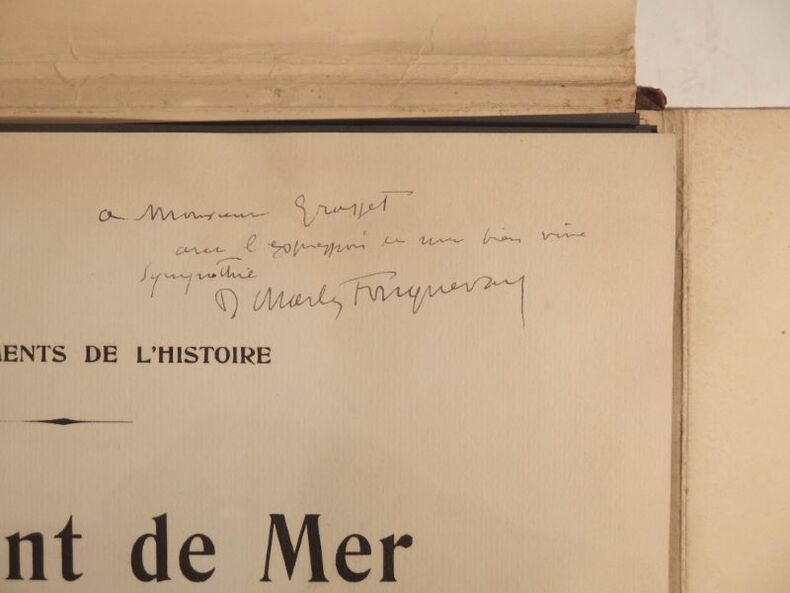 a Monsieur Grasset
avec l'expression de ma bien vive
sympathie
Dr Charles Fouqueray
MENTS DE L'HISTOIRE
nt de Mer